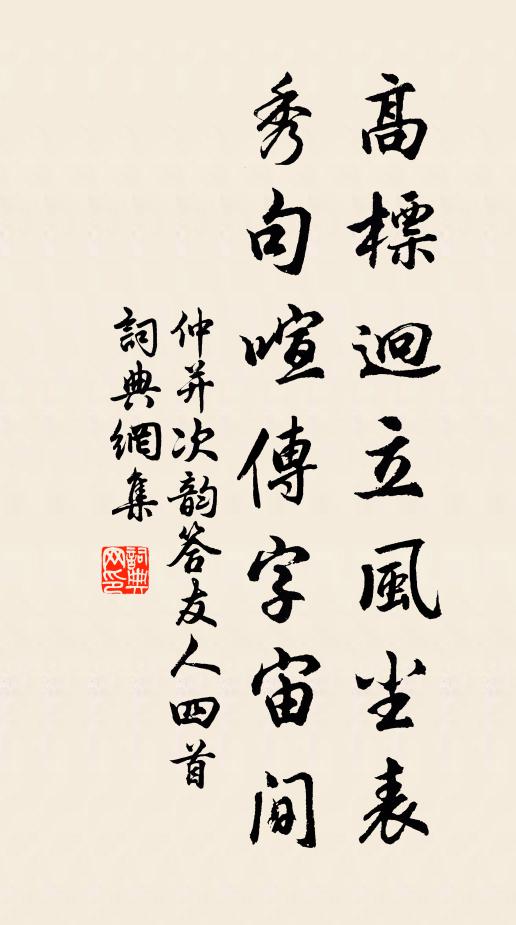 髙標迥立風尘表
秀句喧傳字宙間
仲并次韵答友人四首
詞典網集
詞典网印